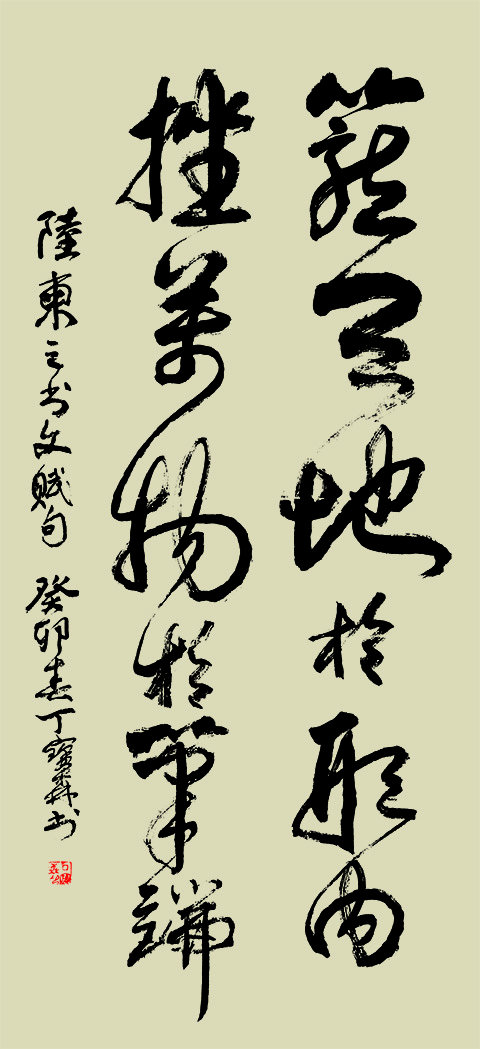 籠天地於形内
挫萬物於筆端
陸東之书文賦句 癸卯春丁寶森书